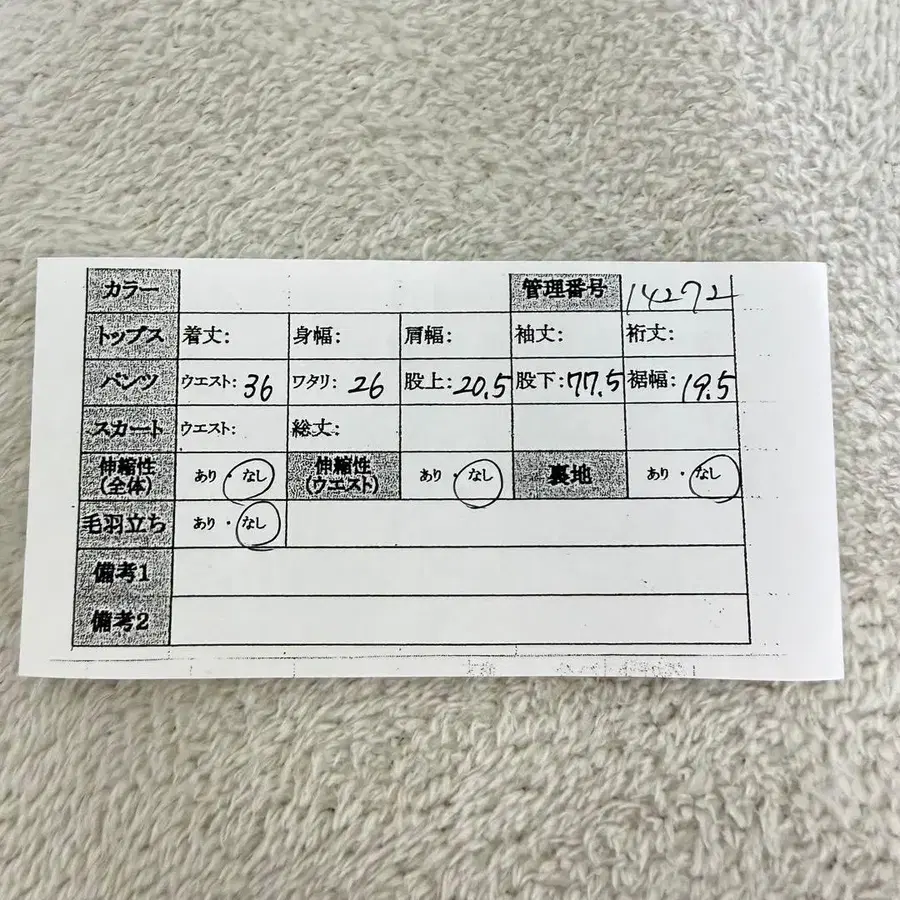 カラー 管理番号 14272
トップス 着丈: 身幅: 肩幅: 袖丈: 裄丈:
パンツ ウエスト: 36 ワタリ: 26 股上: 20.5 股下: 77.5 裾幅: 19.5
スカート ウエスト: 総丈:
伸縮性(全体) あり・なし 伸縮性(ウエスト) あり・なし 裏地 あり・なし
毛羽立ち あり・なし
備考1
備考2